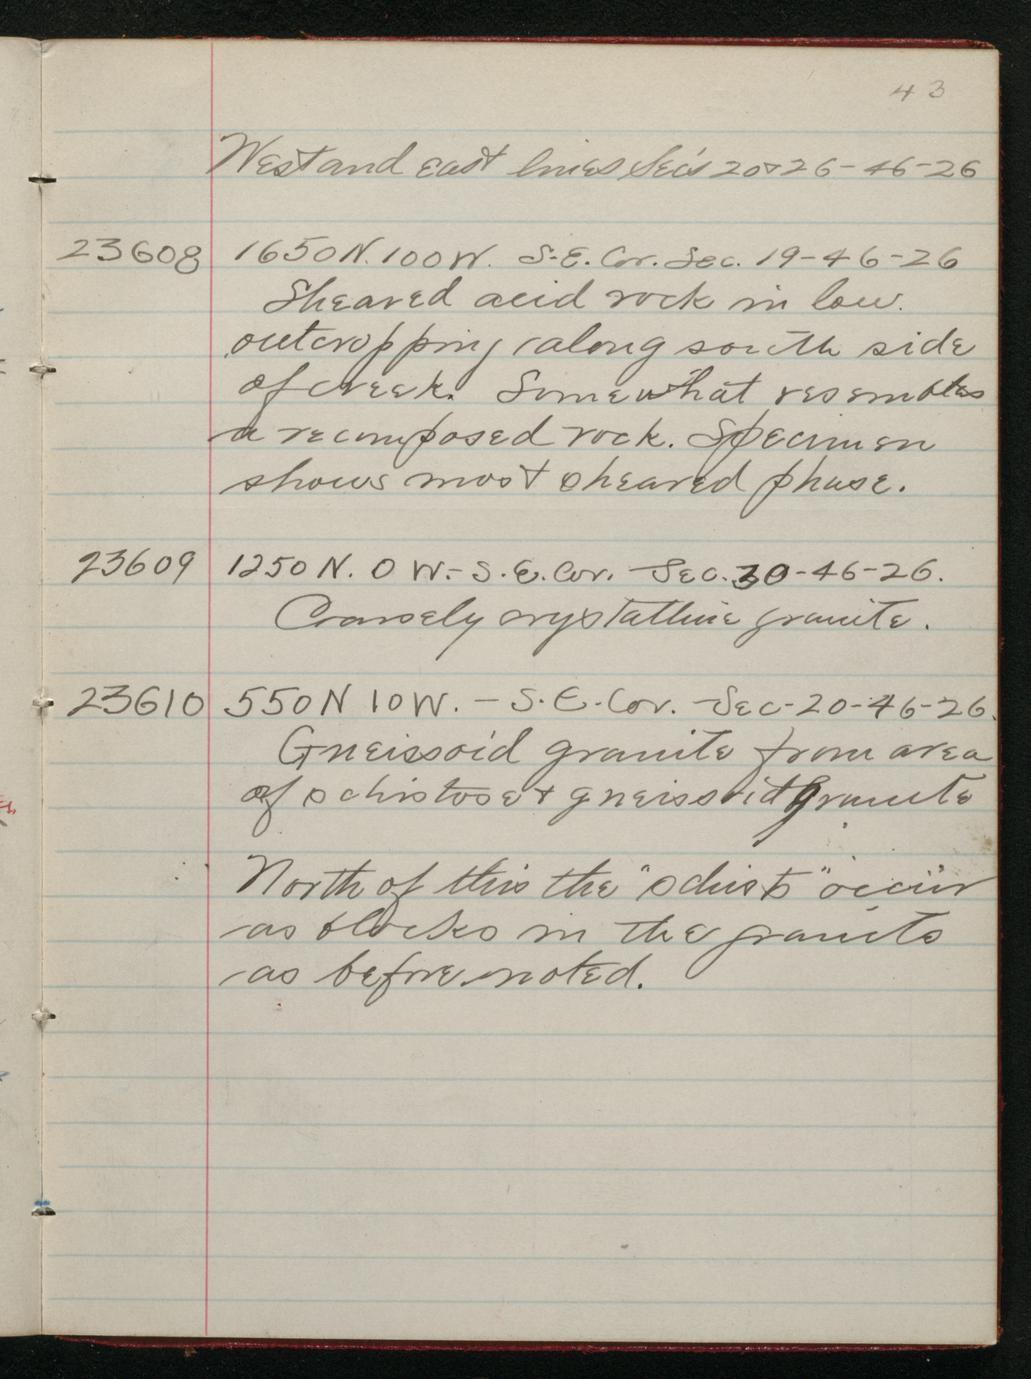 43
West and east lines Sec's 20 & 26-46-26
23608 1650 N. 100 W. S.E. Cor. Sec. 19-46-26
Sheared acid rock in low
outcropping along south side
of creek. Somewhat resembles
a recomposed rock. Specimen
shows most sheared phase.
23609 1250 N. 0 W.- S.E. Cor. Sec. 30-46-26.
Coarsely crystalline granite.
23610 550 N 10 W. - S.E. Cor. Sec-20-46-26.
Gneissoid granite from area
of schistose & gneissoid granite
North of this the "schists" occur
as blocks in the granite
as before noted.